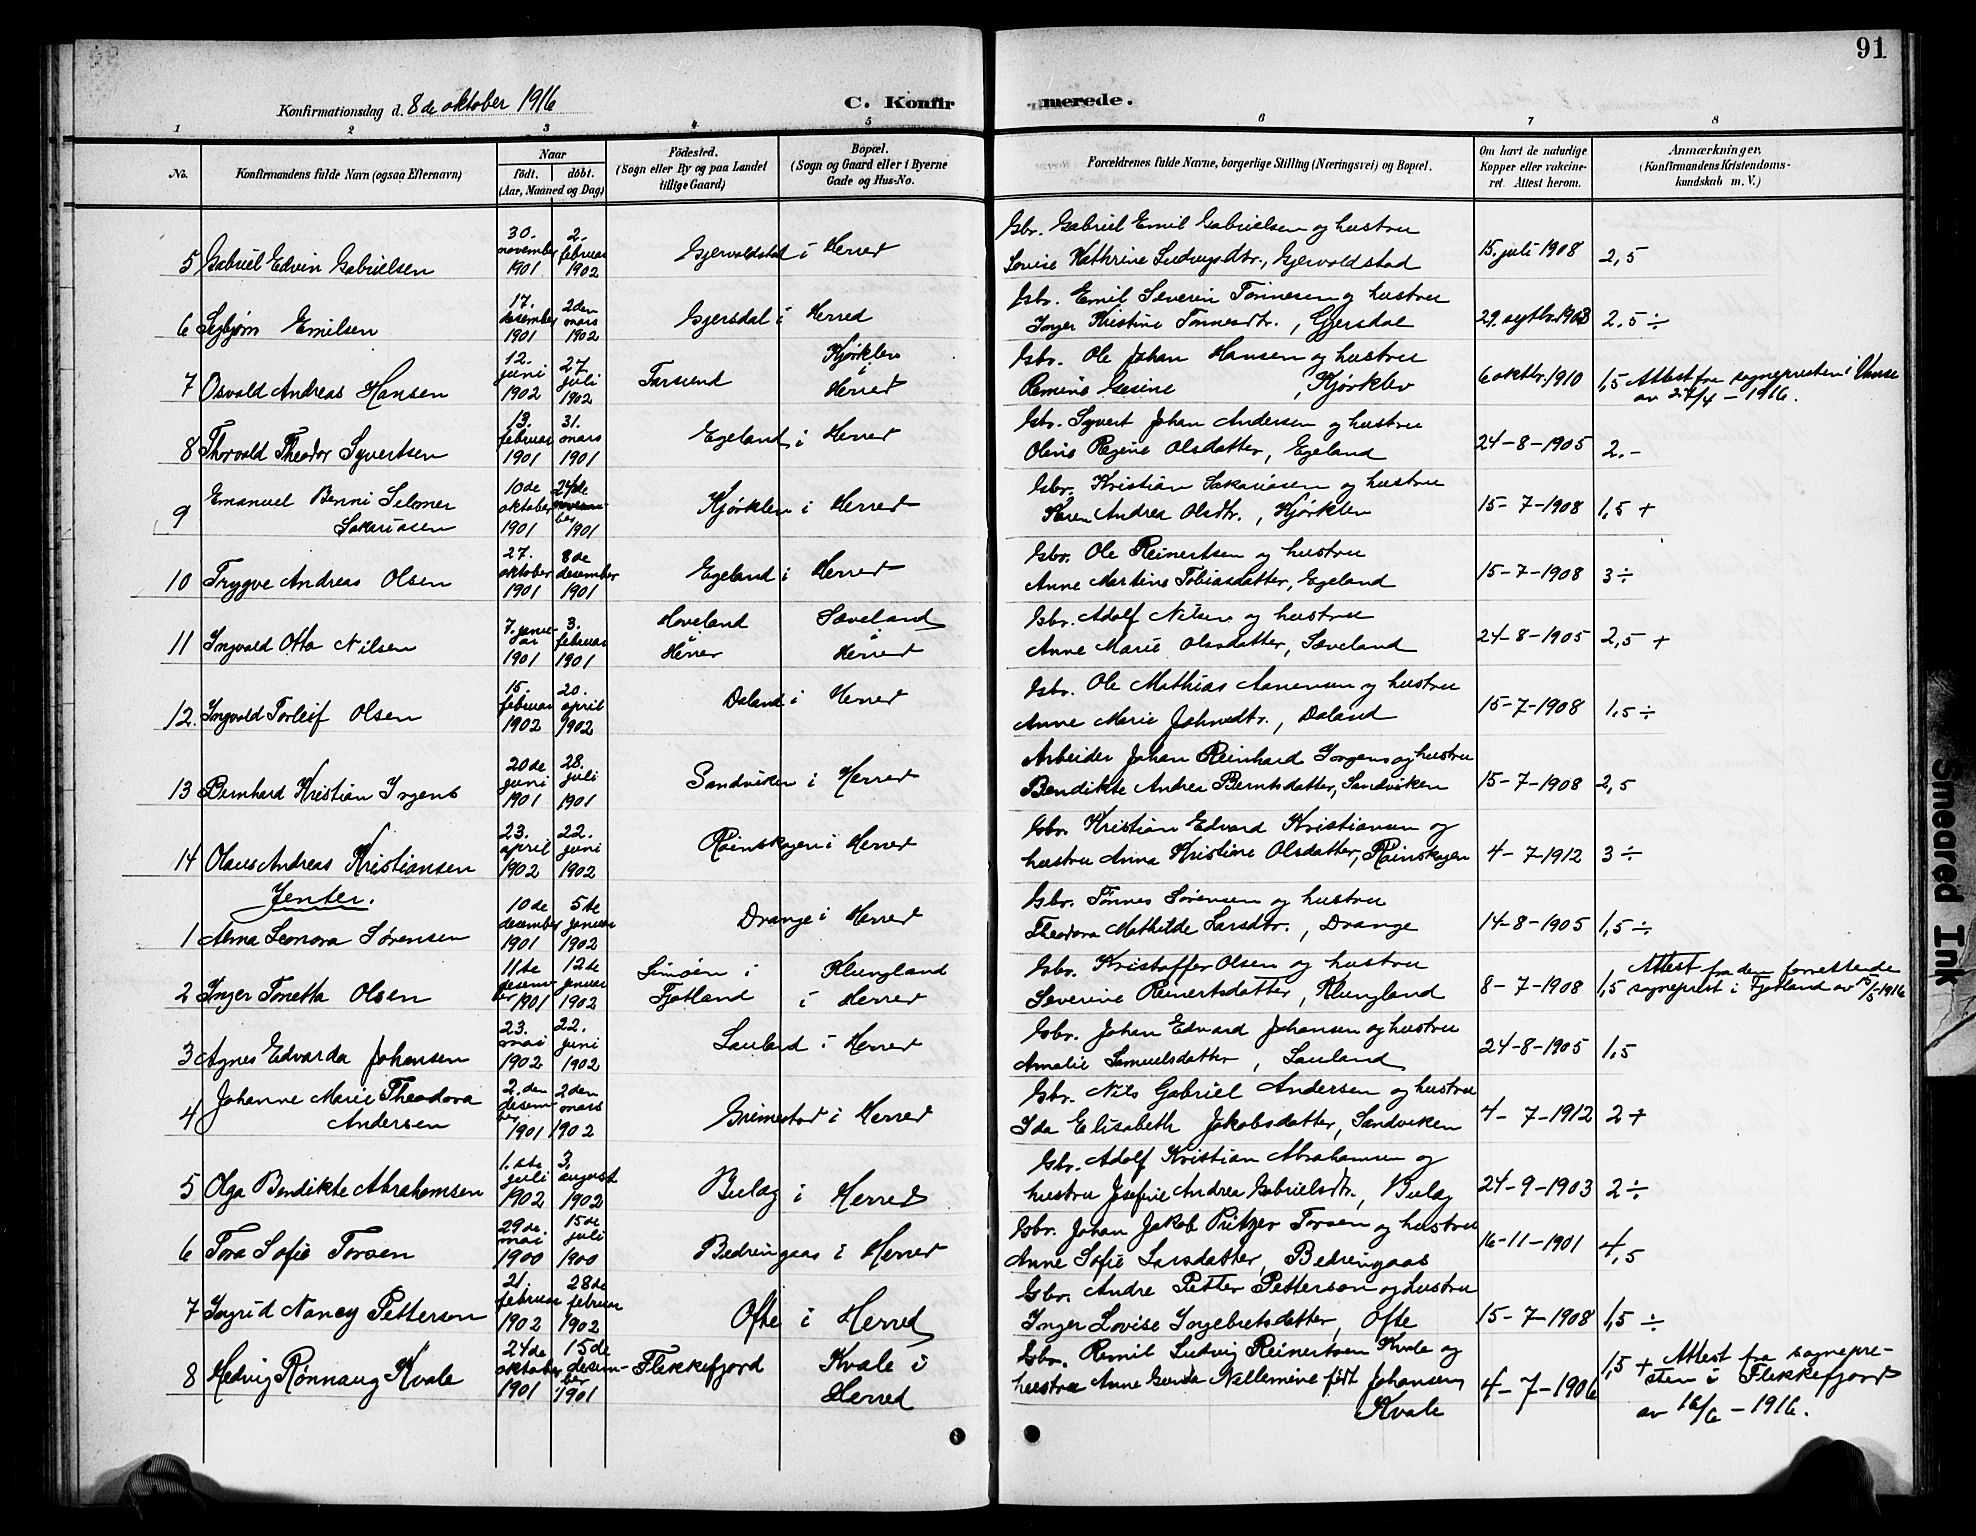 91
Konfirmationsdag d. 8de oktober 1916
C. Konfirmerede.
1 2 3 4 5 6 7 8
No.
Konfirmandens fulde Navn (ogsaa Efternavn)
Naar
født. døbt.
(Aar, Maaned og Dag)
Fødested.
(Sogn eller By og paa Landet
tillige Gaard)
Bopæl.
(Sogn og Gaard eller i Byerne
Gade og Hus-No.
Forældrenes fulde Navne, borgerlige Stilling (Næringsvei) og Bopæl.
Om havt de naturlige
Kopper eller vakcine-
ret. Attest herom.
Anmærkninger.
(Konfirmandens Kristendoms-
kundskab m. V.)
5 Gabriel Edvin Gabrielsen 30. november 1901 2. februar 1902 Gjervoldstad i Herred Gbr. Gabriel Emil Gabrielsen og hustru
Lovise Kathrine Ludvigsdtr., Gjervoldstad 15. juli 1908 2,5
6 Emilsen 17. desember 1901 2den mars 1902 Gjersdal i Herred Gbr. Emil Severin Tønnesen og hustru
Inger Kristine Tønnesdtr., Gjersdal 29. septbr. 1903 2,5 ÷
7 Osvald Andreas Hansen 12. juni 1902 27. juli 1902 Farsund Kjørklev i Herred Gbr. Ole Johan Hansen og hustru
Gesine, Kjørklev 6 oktbr. 1910 1,5 Attest fra sognepresten i Vanse
av 27/4 - 1916.
8 Thorvald Theodor Syvertsen 13. februar 1901 31. mars 1901 Egeland i Herred Gbr. Syvert Johan Andersen og hustru
Oline Regine Olsdatter, Egeland 24-8-1905 2.-
9 Emanuel Benni Selmer
Sakariasen 10de oktober 1901 24de november 1901 Kjørklev i Herred Gbr. Kristian Sakariasen og hustru
Karen Andrea Olsdtr., Kjørklev 15-7-1908 1,5 +
10 Trygve Andreas Olsen 27. oktober 1901 8de desember 1901 Egeland i Herred Gbr. Ole Reinertsen og hustru
Anne Martine Tobiasdatter, Egeland 15-7-1908 3 ÷
11 Ingvald Otto Nilsen 7. januar 1901 3. februar 1901 Hoveland i Herrer Sæveland i Herred Gbr. Adolf Nilsen og hustru
Anne Marie Olsdatter, Sæveland 24-8-1905 2,5 +
12. Ingvald Torleif Olsen 15. februar 1902 20. april 1902 Daland i Herred Gbr. Ole Mathias Aanensen og hustru
Anne Marie Johnsdtr., Daland 15-7-1908 1,5 ÷
13 Bernhard Kristian Irgens 20de juni 1901 28. juli 1901 Sandviken i Herred Arbeider Johan Reinhard Irgens og hustru
Bendikte Andrea Berntsdatter, Sandviken 15-7-1908 2,5
14 Olaus Andreas Kristiansen 23. april 1902 22. juni 1902 Røinskogen i Herred Gbr. Kristian Edvard Kristiansen og
hustru Anna Kristine Olsdatter, Røinskogen 4-7-1912 3 ÷
Jenter.
1 Alma Leonora Sørensen 10de desember 1901 5te januar 1902 Drange i Herred Gbr. Tønnes Sørensen og hustru
Theodora Mathilde Larsdtr., Drange 14-8-1905 1,5 ÷
2 Inger Tonetta Olsen 11te desember 1901 12te januar 1902 Simoen i Fjotland Klungland i Herred Gbr. Kristoffer Olsen og hustru
Severine Reinertsdatter, Klungland 8-7-1908 1,5 Attest fra den forrettende
sogneprest i Fjotland av 15/5-1916
3 Agnes Edvarda Johansen 23. mai 1902 22. juni 1902 Lauland i Herred Gbr. Johan Edvard Johansen og hustru
Amalie Samuelsdatter, Lauland 24-8-1905 1,5
4 Johanne Marie Theodora
Andersen 2.den desember 1901 2den mars 1902 Grimestad i Herred Gbr. Nils Gabriel Andersen og hustru
Ida Elisabeth Jakobsdatter, Sandviken 4-7-1912 2 +
5 Olga Bendikte Abrahamsen 1.ste juli 1902 3. august 1902 Bulæg i Herred Gbr. Adolf Kristian Abrahamsen og
hustru Josefine Andrea Gabrielsdtr., Bulæg 24-9-1903 2 ÷
6 Tora Sofie Torsen 29de mai 1900 15de juli 1900 Bedringaas i Herred Gbr. Johan Jakob Pritzer Torsen og hustru
Anne Sofie Larsdatter, Bedringaas 16-11-1901 4,5
7 Ingrid Nancy Petterson 21. februar 1902 28de februar 1902 Ofte i Herred Gbr. Andre Petter Petterson og hustru
Inger Lovise Ingebretsdatter, Ofte 15-7-1908 1,5 ÷
8 Hedvig Rønnaug Kvale 24de oktober 1901 15de desember 1901 Flekkefjord Kvale i Herred Gbr. Remil Ludvig Reinertsen Kvale og
hustru Anne Gunda Nellemine født Johansen,
Kvale 4-7-1906 1,5 + Attest fra sognepre-
sten i Flekkefjord
av 16/6 - 1916.
Smeared Ink